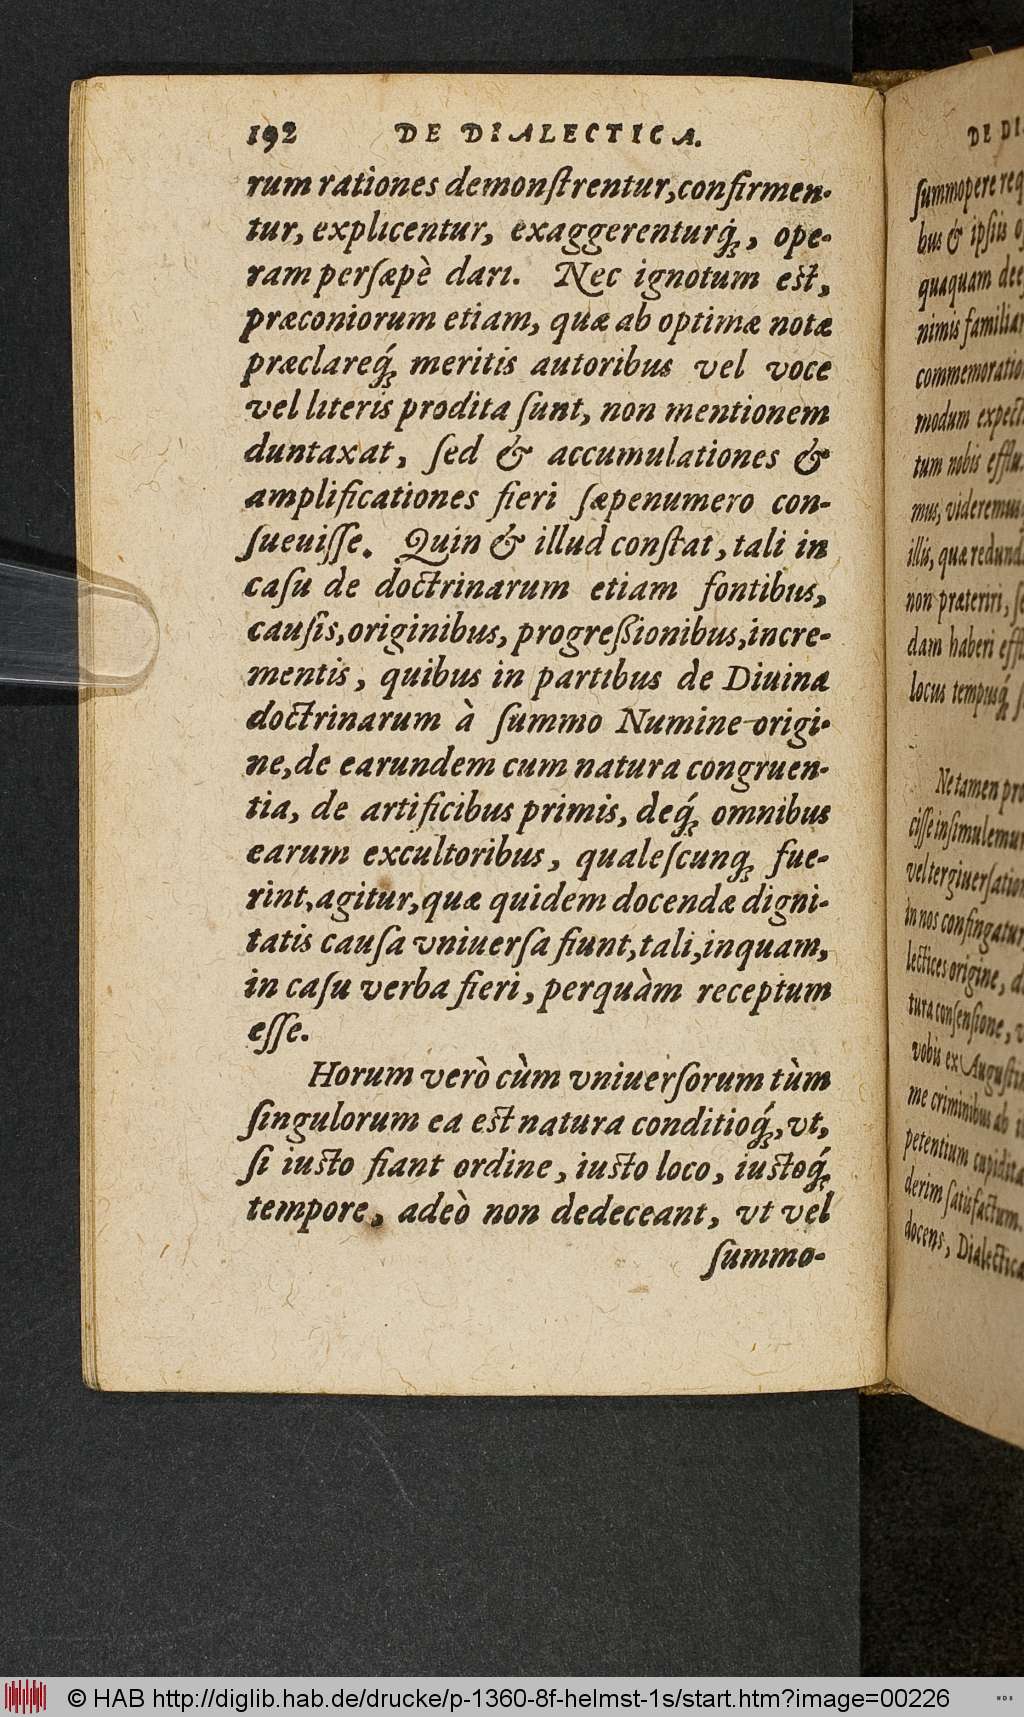 192 DE DIALECTICA.
rum rationes demonſtrentur, confirmen-
tur, explicentur, exaggerenturq́;, ope-
ram perſæpè dari. Nec ignotum eſt,
præconiorum etiam, quæ ab optimæ notæ
præclareq́; meritis autoribus vel voce
vel literis prodita ſunt, non mentionem
duntaxat, ſed & accumulationes &
amplificationes fieri ſæpenumero con-
ſueuiſſe. Quin & illud conſtat, tali in
caſu de doctrinarum etiam fontibus,
cauſis, originibus, progreßionibus, incre-
mentis, quibus in partibus de Diuina
doctrinarum à ſummo Numine origi-
ne, de earundem cum natura congruen-
tia, de artificibus primis, deq́; omnibus
earum excultoribus, qualeſcunq; fue-
rint, agitur, quæ quidem docendæ digni-
tatis cauſa vniuerſa fiunt, tali, inquam,
in caſu verba fieri, perquàm receptum
eſſe.
Horum verò cùm vniuerſorum tùm
ſingulorum ea eſt natura conditioq́;, vt,
ſi iuſto fiant ordine, iuſto loco, iuſtoq́;
tempore, adeò non dedeceant, vt vel
ſummo-
DE DI
ſummopere req
bus & ipſiis o
quaquam dee
nimis familiar
commemoratio
modum expect
tum nobis efflu
mus, videremus
illis, quæ redund
non præteriri, ſe
dam haberi eff
locus tempusq́;
Ne tamen pro
ciſſe inſimulemur
vel tergiuerſation
in nos confingatur
lectices origine, d
tura conſenſione, v
vobis ex Auguſti
me criminibus ab i
petentium cupidita
derim ſatisfactum.
docens, Dialectica
© HAB http://diglib.hab.de/drucke/p-1360-8f-helmst-1s/start.htm?image=00226